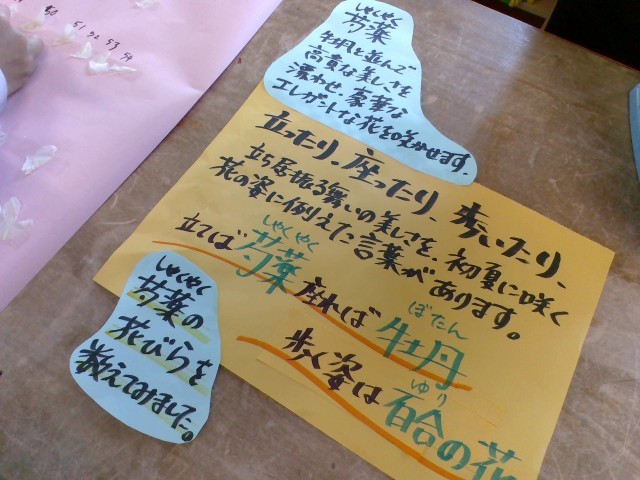 50 51 52 53 54
しゃくやく
芍薬
牡丹と並んで
高貴な美しさを
漂わせ、豪華な
エレガントな花を咲かせます。
立ったり、座ったり、歩いたり、
立ち居振る舞いの美しさを、初夏に咲く
花の姿に例えた言葉があります。
しゃくやく
立てば芍薬
ぼたん
座れば牡丹
ゆり
歩く姿は百合の花
しゃくやく
芍薬の
花びらを
数えてみました。